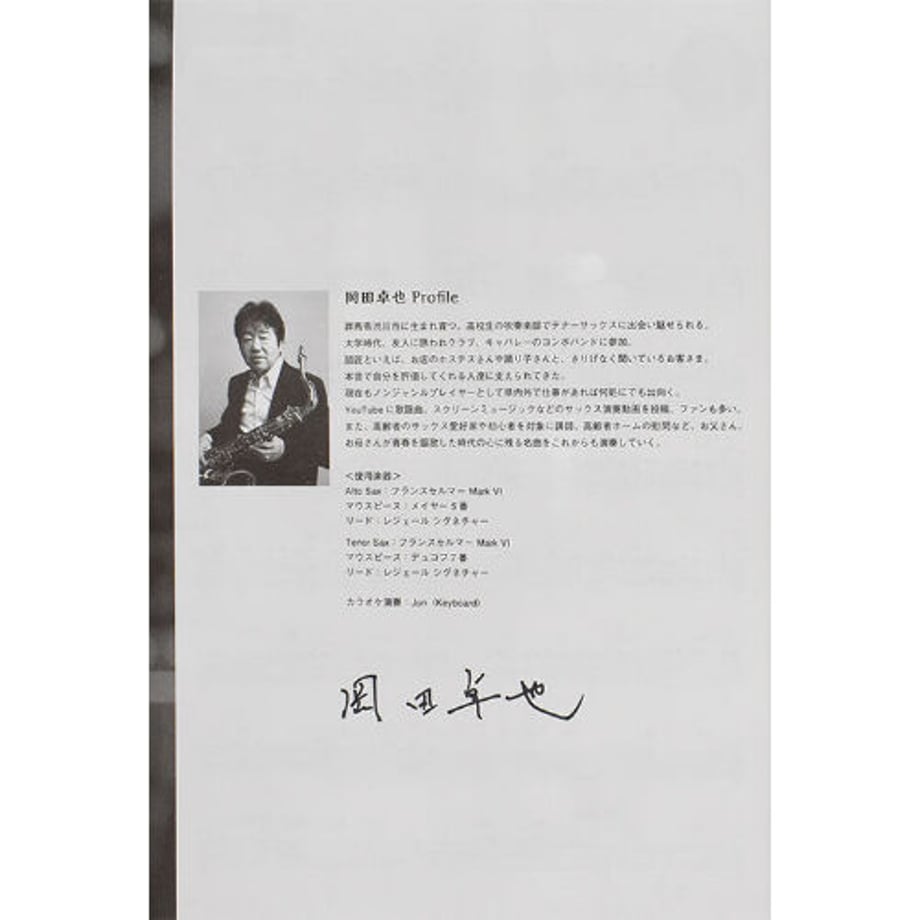 岡田卓也 Profile
群馬県渋川市に生まれ育つ。高校生の吹奏楽部でテナーサックスに出会い魅せられる。
大学時代、友人に誘われクラブ、キャバレーのコンボバンドに参加。
師匠といえば、お店のホステスさんや踊り子さんと、さりげなく聞いているお客さま。
本音で自分を評価してくれる人達に支えられてきた。
現在もノンジャンルプレイヤーとして県内外で仕事があれば何処にでも出向く。
YouTubeに歌謡曲、スクリーンミュージックなどのサックス演奏動画を投稿、ファンも多い。
また、高齢者のサックス愛好家や初心者を対象に講師、高齢者ホームの慰問など、お父さん、
お母さんが青春を謳歌した時代の心に残る名曲をこれからも演奏していく。
＜使用楽器＞
Alto Sax：フランスセルマー Mark VI
マウスピース：メイヤー 5 番
リード：レジェール シグネチャー
Tenor Sax：フランスセルマー Mark VI
マウスピース：デュコフ 7 番
リード：レジェール シグネチャー
カラオケ演奏：Jun（Keyboard）
岡田卓也